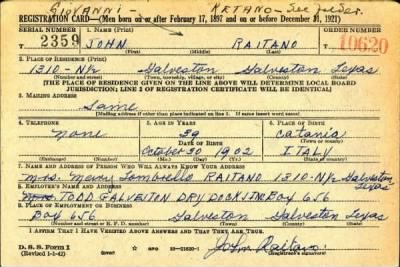 GIOVANNI - KETANO - See Juder.
REGISTRATION CARD—(Men born on or after February 17, 1897 and on or before December 31, 1921)
SERIAL NUMBER 1. NAME (Print) ORDER NUMBER
T 2359 JOHN RAITANO 10620
(First) (Middle) (Last)
2. PLACE OF RESIDENCE (Print)
1310-N½ Galveston Galveston Texas
(Number and street) (Town, township, village, or city) (County) (State)
[THE PLACE OF RESIDENCE GIVEN ON THE LINE ABOVE WILL DETERMINE LOCAL BOARD
JURISDICTION; LINE 2 OF REGISTRATION CERTIFICATE WILL BE IDENTICAL]
3. MAILING ADDRESS
Same
(Mailing address if other than place indicated on line 2. If same insert word same)
4. TELEPHONE 5. AGE IN YEARS 6. PLACE OF BIRTH
none 39 Catania
DATE OF BIRTH (Town or county)
October 30 1902 ITALY
(Exchange) (Number) (Mo.) (Day) (Yr.) (State or country)
7. NAME AND ADDRESS OF PERSON WHO WILL ALWAYS KNOW YOUR ADDRESS
Mrs. Mary Tombrello RAITANO 1310-N½ Galveston Texas
8. EMPLOYER'S NAME AND ADDRESS
TODD GALVESTON DRY DOCK INC BOX 656
9. PLACE OF EMPLOYMENT OR BUSINESS
BOX 656 Galveston Galveston Texas
(Number and street or R. F. D. number) (Town) (County) (State)
I AFFIRM THAT I HAVE VERIFIED ABOVE ANSWERS AND THAT THEY ARE TRUE.
D. S. S. Form 1
(Revised 1-1-42) (over) GPO 16—21630-1 John Raitano
(Registrant's signature)